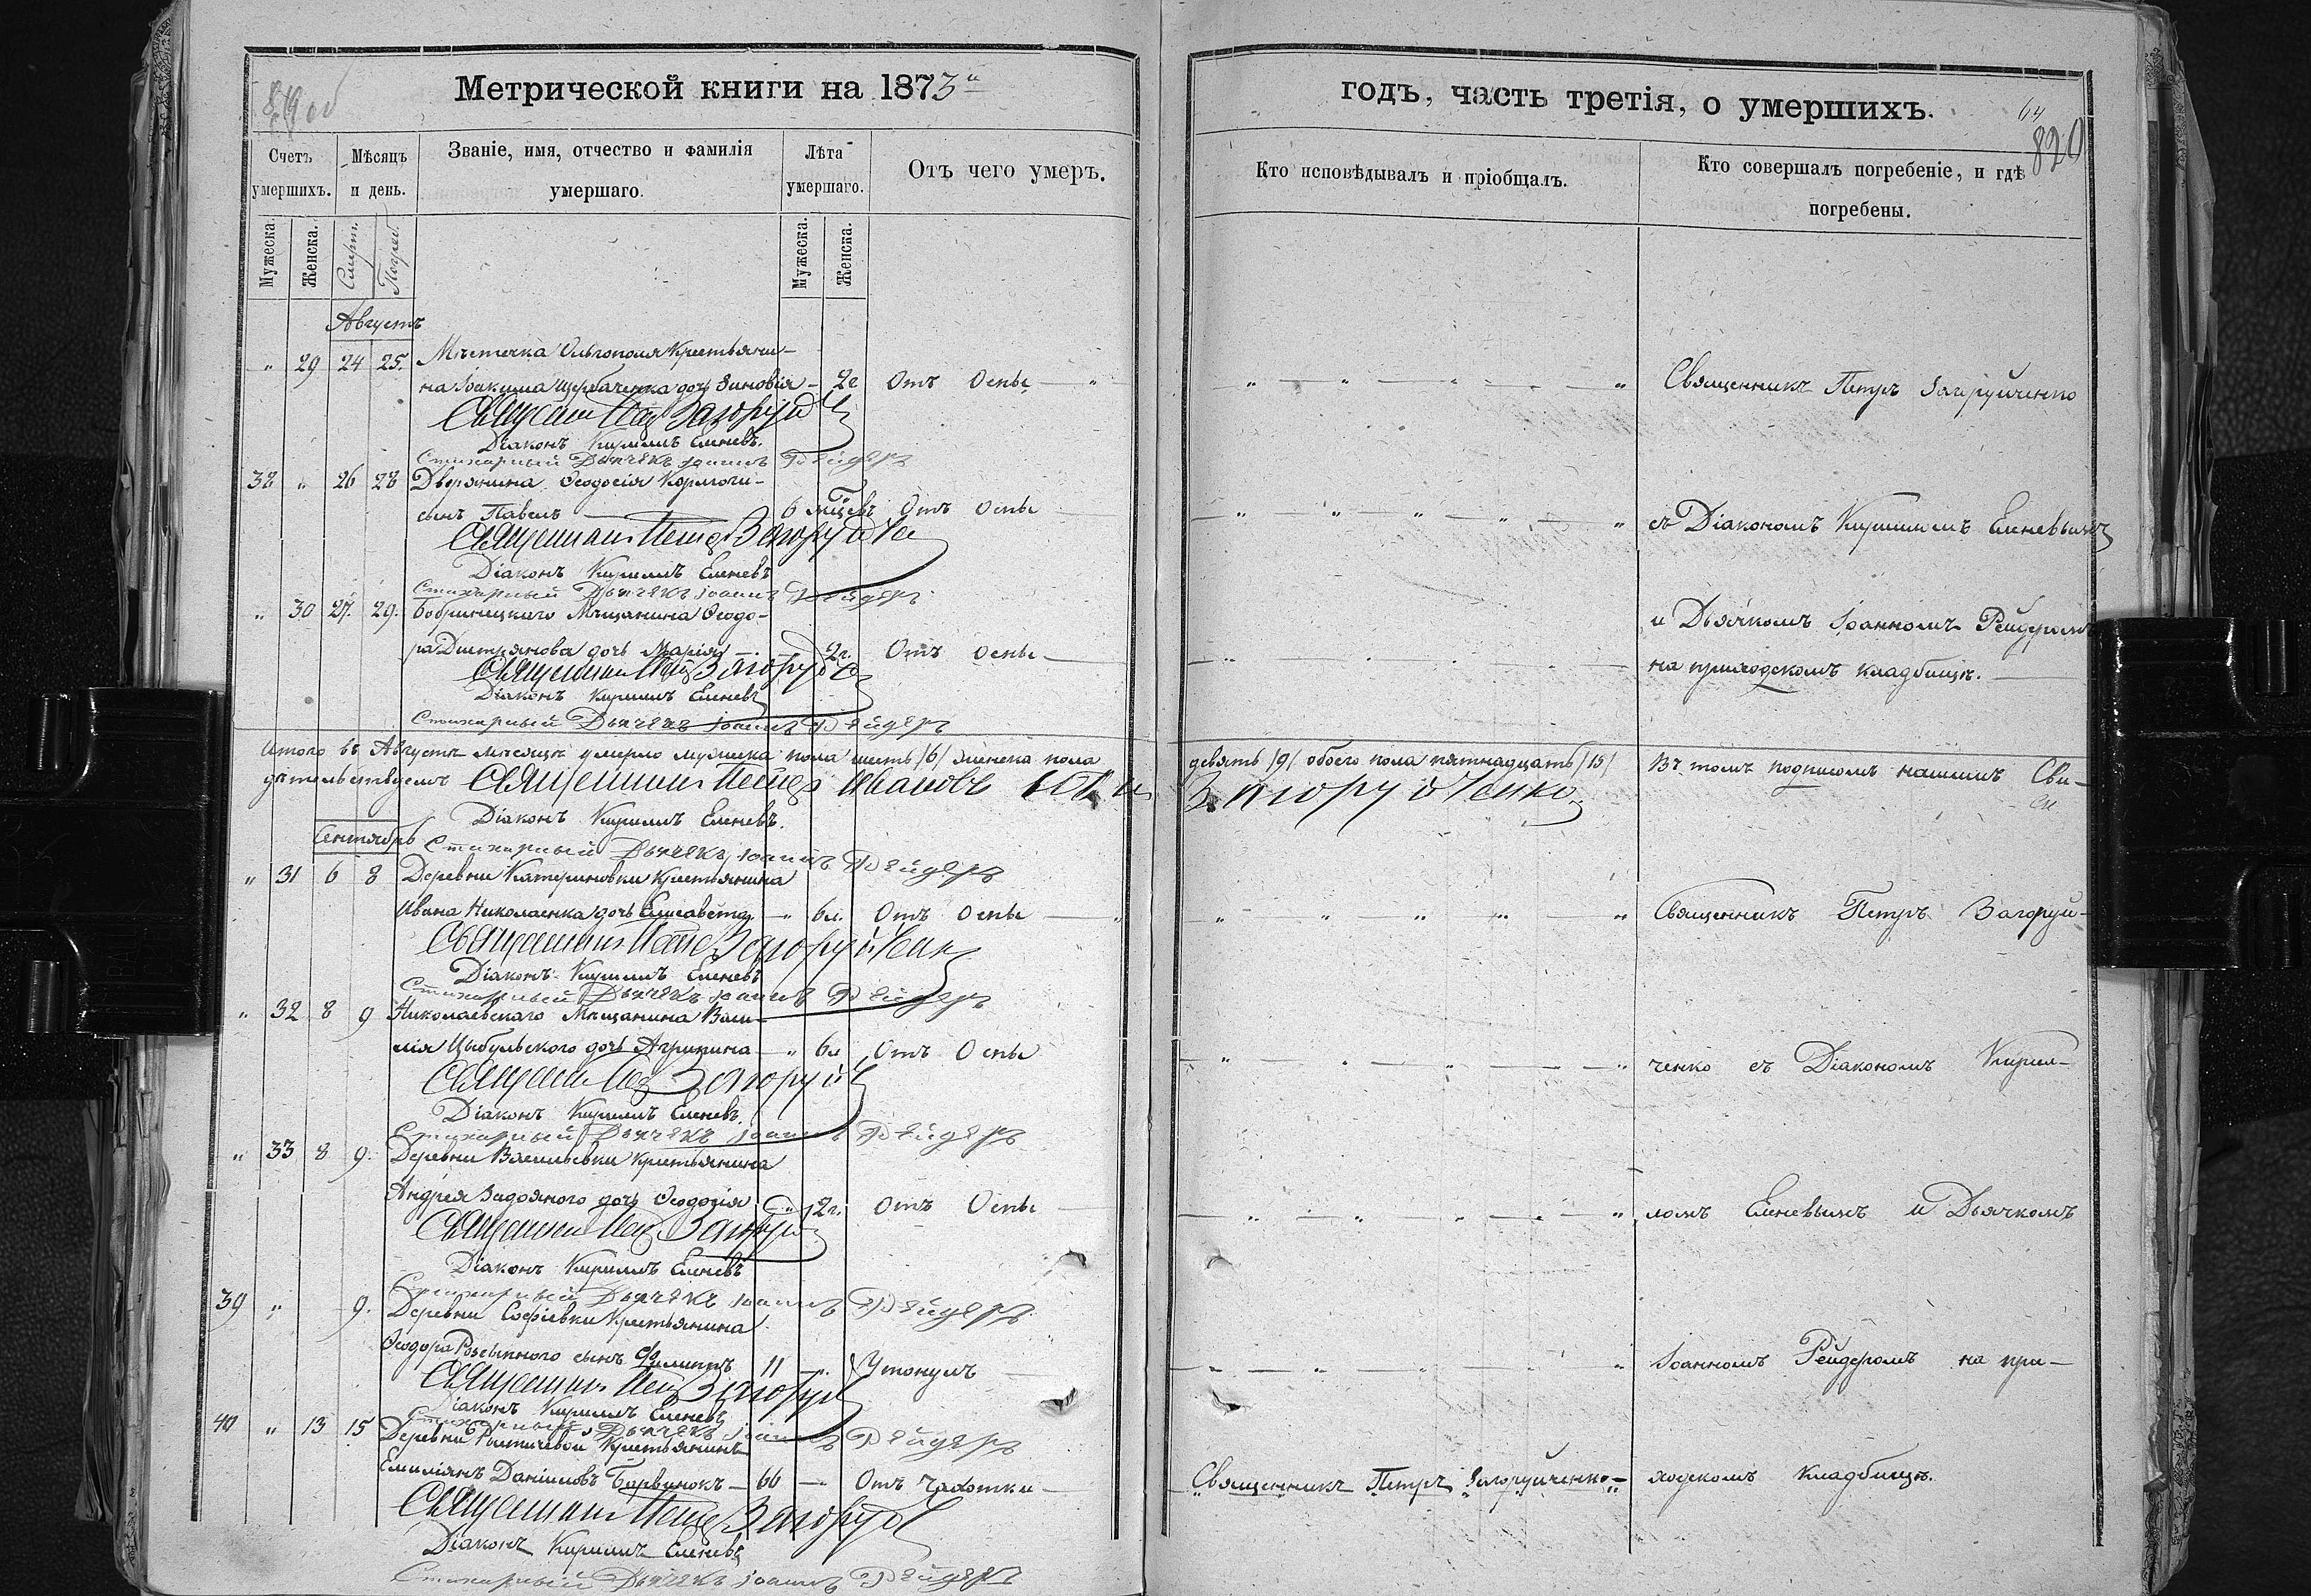 Метрической книги на 1873й
годъ, часть третія, о умершихъ.
819 об
64
820
Счетъ умершихъ.
Мѣсяцъ и день.
Званіе, имя, отчество и фамилія умершаго.
Лѣта умершаго.
Отъ чего умеръ.
Кто исповѣдывалъ и пріобщалъ.
Кто совершалъ погребеніе, и гдѣ погребены.
Мужеска.
Женска.
Смерт.
Погреб.
Мужеска.
Женска.
Августъ
" 29 24 25. Мѣстечка Ольгополя Крестьяни-
на Іоакима Щербаченка дочь Зиновія - 2г Отъ Оспы " Священникъ Петръ Загруйченко
Священникъ Петръ
Діаконъ Кириллъ Еленевъ.
Стихарный Дьячекъ Іоаннъ Рейдеръ
38 " 26 28 Дворянина Ѳеодосія
сынъ Павелъ 6 мѣсцевъ Отъ Оспы съ Діакономъ Кирилломъ Еленевымъ
Священникъ Петръ
Діаконъ Кириллъ Еленевъ
Стихарный Дьячекъ Іоаннъ Рейдеръ
" 30 27. 29. Бобринецкаго Мѣщанина Ѳеодо-
ра Дмитріянова дочь Марія 2г. Отъ Оспы и Дьячкомъ Іоанномъ Рейдеромъ
на приходскомъ кладбищѣ.
Священникъ Петръ
Діаконъ Кириллъ Еленевъ
Стихарный Дьячекъ Іоаннъ Рейдеръ
Итого въ Августѣ мѣсяцѣ умерло мужеска пола шесть /6/ женска пола девять /9/ обоего пола пятнадцать /15/ Въ томъ подписомъ нашимъ Сви-
дѣтельствуемъ Священникъ Петръ Ивановъ Загоруйченко
Діаконъ Кириллъ Еленевъ.
Стихарный Дьячекъ Іоаннъ Рейдеръ
Сентябрь
" 31 6 8 Деревни Катериновки Крестьянина
Ивана Николаенка дочь Елисавета - " 6л. Отъ Оспы " Священникъ Петръ Загоруй-
Священникъ Петръ Загоруйченк
Діаконъ Кириллъ Еленевъ
Стихарный Дьячекъ Іоаннъ Рейдеръ
" 32 8 9 Николаевскаго Мѣщанина Васи-
лія Цыбульского дочь Агрипина - " 6л Отъ Оспы ченко съ Діакономъ Кирил-
Священникъ Петръ
Діаконъ Кириллъ Еленевъ
Стихарный Дьячекъ Іоаннъ Рейдеръ
" 33 8 9. Деревни Васильевки Крестьянина
Андрея Задоянного дочь Ѳеодосія " 2г. Отъ Оспы ломъ Еленевымъ и Дьячкомъ
Священникъ Петръ
Діаконъ Кириллъ Еленевъ
Стихарный Дьячекъ Іоаннъ Рейдеръ
39 " 9. Деревни Софіевки Крестьянина
Ѳеодора сынъ Филиппъ 11 - Утонулъ Іоанномъ Рейдеромъ на при-
Священникъ Петръ
Діаконъ Кириллъ Еленевъ
Стихарный Дьячекъ Іоаннъ Рейдеръ
40 " 13 15 Деревни Крестьянинъ
Емиліянъ Даніиловъ Барвинокъ - 66 - Отъ Чахотки Священникъ Петръ Загоруйченко - ходскомъ Кладбищѣ.
Священникъ Петръ
Діаконъ Кириллъ Еленевъ
Стихарный Дьячекъ Іоаннъ Рейдеръ